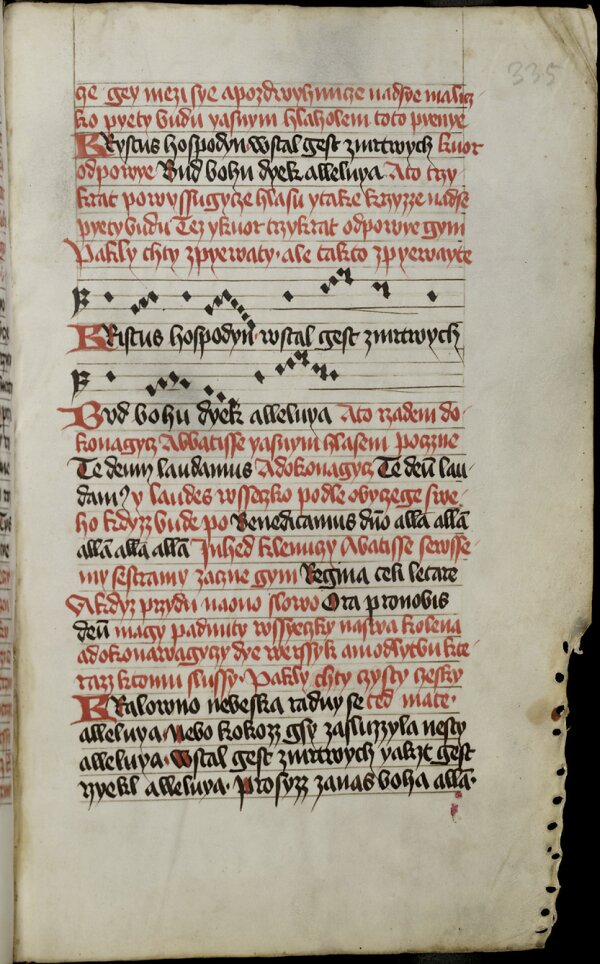 335
ze gey mezi sye a pozdwyhnucze nadsve malicz
ko pyety budu yasnym hlaholem toto pyenye
KRystus hospodyn wstal gest zmrtwych kuor
odpowye Bud bohu dyek alleluya Ato trzy
krat powyssugycze hlasu ytake krzyzze nadse
pyety budu Tez ykuor trzykrat odpowye gym
Pakly chty zpyewaty · ale takto zpyewayte
KRistus hospodyn wstal gest zmrtwych
Bud bohu dyek alleluya Ato rzadem do-
konagycz Abbatisse yasnym hlasem poczne
Te deum laudamus Adokonagycz Te deū lau-
dam9 y laudes wsseczko podle obyczege swe-
ho kdyzz bude po Benedicamus dno allā allā
allā allā allā Inhed kleniczy Abatisse sewsse-
my sestramy zacne gym Regina celi letare
Akdyz przydu naono slowo Ora pronobis
deū magy padnuty wssyeczky naswa kolena
adokonawagyczy dye werssyk amodlytbu kte-
razz ktomu slussy · Pakly chty czysty czesky
KRalowno nebeska raduy se ted mate ·
alleluya · Nebo kokozz gsy zasluzzyla nesty
alleluya · Wstal gest zmrtwych yakzt gest
rzyekl alleluya · Prosyzz zanas boha allā ·